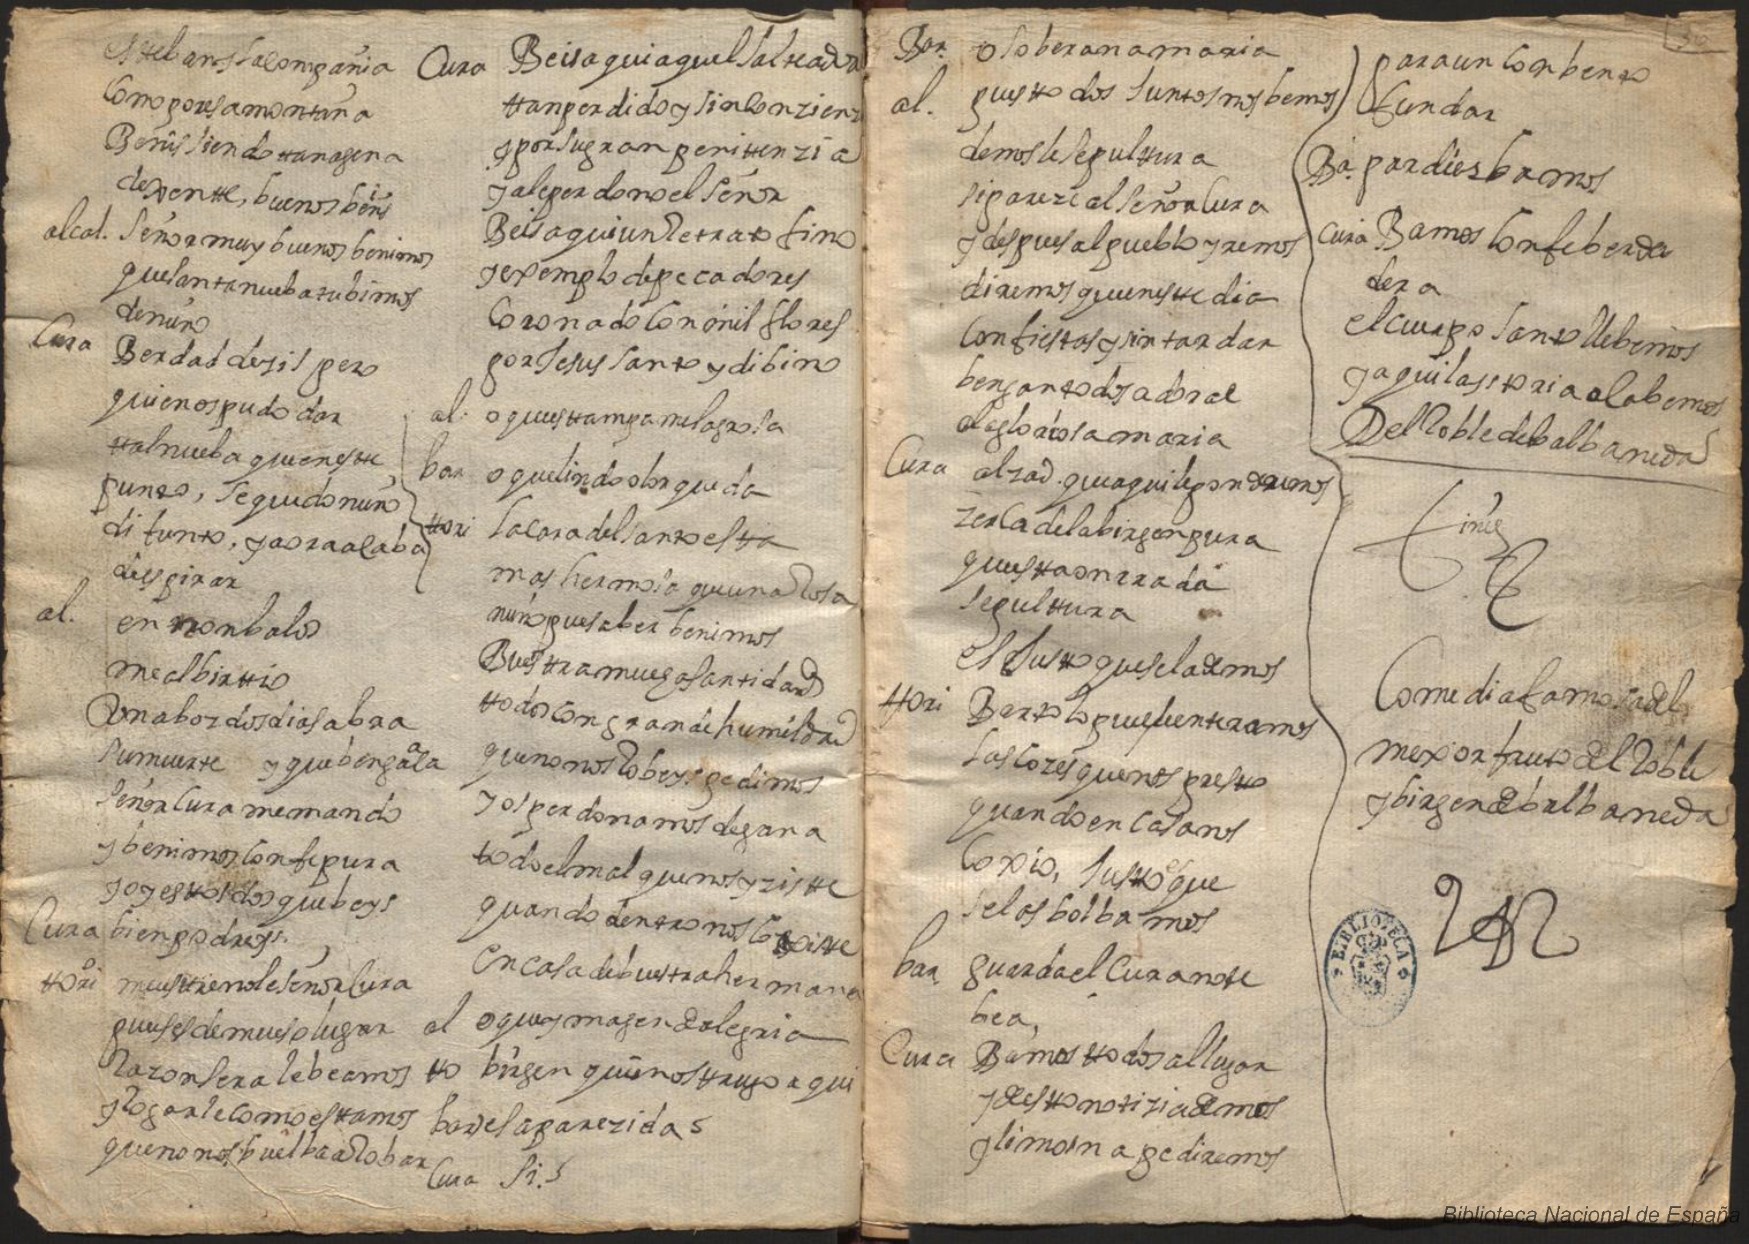 esteban esta compañia
como por esa montaña
Benis siendo tan agena
de xente, buenos benis
alcal. señor muy buenos benimos
que santa nueba tubimos
de nuño
Cura Berdad dezis pero
quien os pudo dar
tal nueba que en este
punto, se quedo nuño
difunto, y aora acaba
despirar
al. en nonbalos
me albirtio
Una boz dos dias abra
su muerte y que benga a la
señor Cura me mando
y benimos con fe pura
yo y estos dos que beys
Cura bien podreys.
tori muestrenole señor Cura
pues es de mueso lugar
Razon sera le beamos
y Rogarle como estamos
que no nos buelba a Robar
Cura Beis aqui aquel salteador
tan perdido y sin conzienz
y por su gran penitenzia
ya le perdono el señor
Beis aqui un Retrato fino
y exemplo de pecadores
Coronado con mil flores
por Jesus santo y dibino
al. o questampa milagrosa
bar o que lindo olor que da
tori la cara del santo esta
mas hermosa que una Rosa
nuño pues a ber benimos
Buestra muesa santidad
todos con grande humildad
que no nos Robeys pedimos
y os perdonamos de gana
todo el mal que nos yziste
quando dentro nos coxiste
en casa de buestra hermana
al o que ymagen de alegria
to birgen quien os truxo aqui
bar es aparezida
Cura Si.
Bar. o soberana maria
al. pues todos juntos nos bemos
demosle sepultura
si pareze al señor Cura
y despues al pueblo yremos
diremos que en este dia
con fiestas y sin tardar
bengan todos adorar
a la gloriosa maria
Cura alzad. que aqui le pondremos
zerca de la birgen pura
questa onrrada
sepultura
es Justo que se la demos
tori Bartolo pues enterramos
las cozes que nos presto
quando en casa nos
Coxio, Justo es que
se las bolbamos
bar guarda el Cura no te
bea,
Cura Bamos todos al lugar
y desto notizia demos
y limosna pediremos
para un conbento
fundar
Ba. pardiez bamos
Cura Bamos con fe berda
dera
el cuerpo santo llebemos
y aqui la istoria acabemos
Del Roble de balbaneda
finis
Comedia famosa del
mexor fruto del Roble
y birgen de balbaneda
BIBLIOTECA
Biblioteca Nacional de España